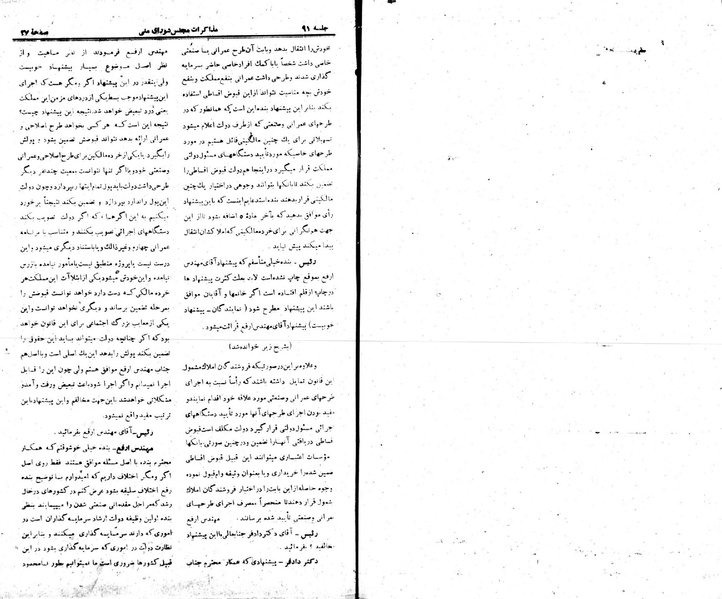 جلسه ۹۱
مذاکرات مجلس شورای ملی
صفحهٔ ۲۷
خودش را انتقال بدهد وبابت آن طرح عمرانی یا صنعتی
خاصی داشت شخصاً یا با کمک افراد خاصی حاضر بسرمایه
گذاری شدند وطرحی داشت عمرانی بنفع مملکت وبنفع
خودش بچه مناسبت نتواند از این قبوض اقساطی استفاده
بکند بنابر این پیشنهاد بنده این است که همانطور که در
طرحهای عمرانی وصنعتی که از طرف دولت اعلام میشود
تسهیلاتی برای یک چنین مالکینی قائل هستیم در مورد
طرحهای خاصی که مورد تأیید دستگاههای مسئول دولتی
مملکت قرار میگیرد در اینجا هم دولت قبوض اقساطی را
تضمین بکند تا بانکها بتوانند وجوهی در اختیار یک چنین
مالکینی قرار بدهند بنده استدعایم اینست که با این پیشنهاد
رأی موافق بدهید که بآخر مادهٔ ۵ اضافه بشود تا از این
جهت هم نگرانی برای خرده مالکینی که املاکشان انتقال
پیدا میکند پیش نیاید.
رئیس ـ بنده خیلی متأسفم که پیشنهاد آقای مهندس
ارفع بموقع چاپ نشده است لابد بعلت کثرت پیشنهاد ها
در چاپ از قلم افتاده است اگر خانمها و آقایان موافق
باشند این پیشنهاد مطرح شود (نمایندگان ـ پیشنهاد
خوبیست) پیشنهاد آقای مهندس ارفع قرائت میشود.
(بشرح زیر خوانده شد)
وعلاوه بر این در صورتیکه فروشندگان املاک مشمول
این قانون تمایل داشته باشند که رأساً نسبت به اجرای
طرحهای عمرانی وصنعتی مورد علاقه خود اقدام نمایند و
مفید بودن اجرای طرحهای آنها مورد تأیید دستگاههای
اجرائی مسئول دولتی قرار گیرد دولت مکلف است قبوض
اقساطی دریافتی آنها را تضمین ودر چنین صورتی بانکها
ومؤسسات اعتباری میتوانند این قبیل قبوض اقساطی
تضمین شده را خریداری ویا بعنوان وثیقه وام قبول نموده
وجوه حاصله از این بابت را در اختیار فروشندگان املاک
مشمول قرار دهند تا منحصراً بمصرف اجرای طرحهای
عمرانی وصنعتی تأیید شده برسانند. مهندس ارفع
رئیس ـ آقای دکتر دادفر جنابعالی با این پیشنهاد
مخالفید؟ بفرمائید.
دکتر دادفر ـ پیشنهادی که همکار محترم جناب
مهندس ارفع فرمودند از نظر ماهیت و از
نظر اصل موضوع بسیار پیشنهاد خوبیست
ولی اینقدر در این پیشنهاد اگر ومگر هست که اجرای
این پیشنهاد موجب بسط یکی از دردهای مزمن این مملکت
یعنی درد تبعیض خواهد شد. نتیجه این پیشنهاد چیست؟
نتیجه این است که هر کسی بخواهد طرح اصلاحی و
عمرانی ارائه بدهد نتواند قبوضش تضمین بشود و پولش
را بگیرد یا یکی از خرده مالکین برای طرح اصلاحی وعمرانی
وصنعتی خود ویا اگر تنها نتوانست بمعیت چند نفر دیگر
طرحی داشت دولت باید پول تمام اینها را بپردازد وچون دولت
این پول را ندارد بپردازد و تضمین بکند نتیجتاً برخورد
میکنیم به این اگرها که اگر دولت تصویب بکند
دستگاههای اجرائی تصویب بکنند و متناسب با برنامه
عمرانی چهارم وغیر ذالک ویا باستناد دیگری میشود و این
درست نیست یا پروژه منطبق نیست یا مأمور نیامده بازرس
نیامده و این خودش میشود یکی از ابتلاآت این مملکت هر
خرده مالکی که دست دارد خواهد توانست قبوضش را
بمرحله تضمین برساند و دیگری نخواهد توانست و این
یکی از معایب بزرگ اجتماعی برای این قانون خواهد
بود که اگر چنانچه دولت میتواند بیاید این حقوق را
تضمین بکند پولش را بدهد این یک اصلی است وبا اصل هم
جناب مهندس ارفع موافق هستم ولی چون این را قابل
اجرا نمیدانم واگر اجرا شود باعث تبعیض ورفت وآمد و
مشکلاتی خواهد شد باین جهت مخالفم و این پیشنهاد باین
ترتیب مفید واقع نمیشود.
رئیس ـ آقای مهندس ارفع بفرمائید.
مهندس ارفع ـ بنده خیلی خوشوقتم که همکار
محترم بنده با اصل مسئله موافق هستند فقط روی اصل
اگر ومگر اختلاف داریم که امیدوارم با توضیح بنده
رفع اختلاف سلیقه بشود عرض کنم در کشورهای در حال
رشد که مراحل مقدماتی صنعتی شدن را میپیمایند بنظر
بنده اولین وظیفه دولت ارشاد سرمایه گذاران است در
اموری که دارند سرمایه گذاری میکنند و بنابر این
نظارت دولت در اموری که سرمایه گذاری بشود در این
قبیل کشورها ضروری است ما نمیتوانیم بطور نامحدود